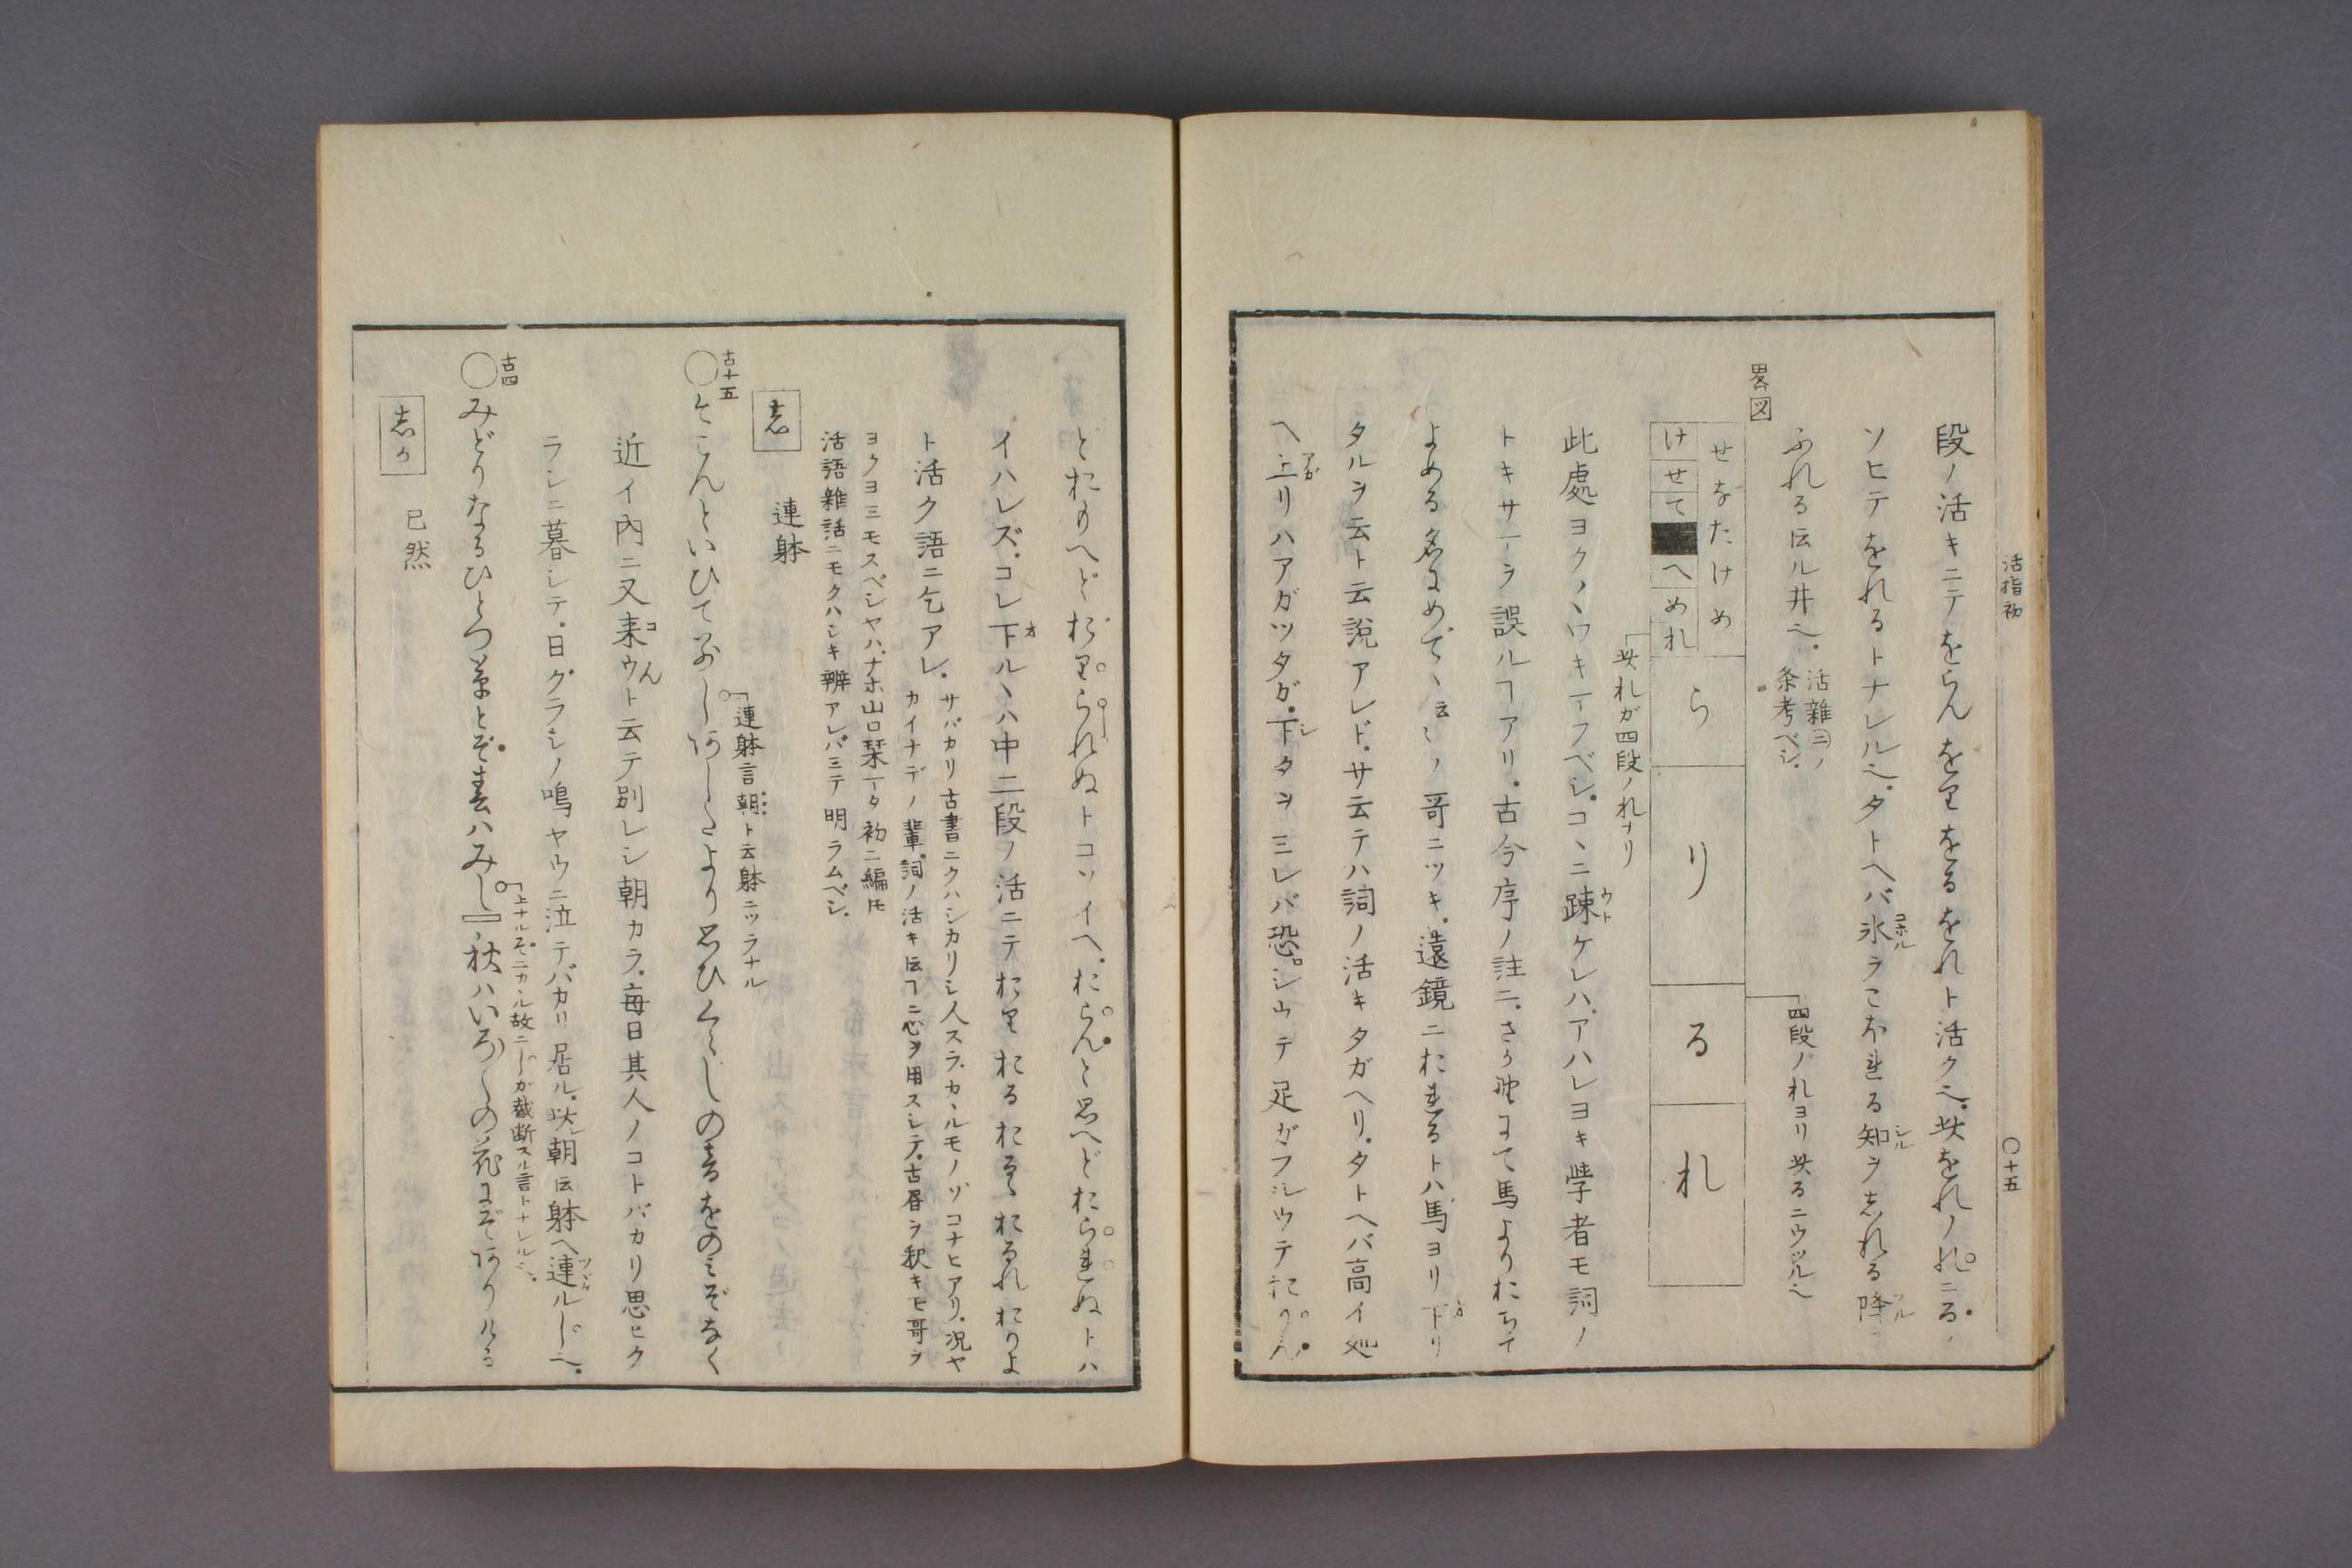 活指初
○十五
段ノ活キニテをらんをりをるをれト活ク也此をれノれニるヽ
ソヒテをれるトナレル也タトヘバ氷ラこほれる知ヲしれる降ヲ
ふれる伝ル井也
活雑三ノ
条考ベシ
四段ノれヨリ此るニウツル也
畧図
せなたけめ
けせて
へめれ
ら
り
る
れ
此れガ四段ノれナリ
此處ヨクヽワキマフベシコヽニ踈ケレハアハレヨキ學者モ詞ノ
トキサマヲ誤ルコアリ古今序ノ註ニさか野にて馬よりおちて
よめる名にめでゝ云〻ノ哥ニツキ遠鏡ニおれるトハ馬ヨリ下リ
タルヲ云ト云説アレドサ云テハ詞ノ活キタガヘリタトヘバ高イ処
ヘ上リハアガツタガ下タヲミレバ恐シウテ足ガフルウテおりん
とおりへどおりられぬトコソイヘおらんと思へどおられぬトハ
イハレズコレ下ルヽハ中二段ノ活ニテおりおるおるゝおるれおりよ
ト活ク語ニ乞アレ
サバカリ古書ニクハシカリシ人スラカヽルモノソコナヒアリ況ヤ
カイナデノ輩詞ノ活キ伝コニ心ヲ用スシテ古書ヲ釈キモ哥ヲ
ヨクヨミモスベシヤハナホ山口栞マタ初ニ編モ
活語雑話ニモクハシキ辨アレバミテ明ラムベシ
志 連躰
連躰言朝ト云躰ニツラナル
古十五
○今こんといひてわかれしあしたより思ひくらしの音をのミぞなく
近イ内ニ又来ウト云テ別レシ朝カラ毎日其人ノコトバカリ思ヒク
ラシニ暮シテ日グラシノ鳴ヤウニ泣テバカリ居ル此朝伝躰ヘ連ルし也
上ナルぞニカヽル故ニしガ截断スル言トナレル也
古四
○みどりなるひとつ草とぞ春ハみし秋ハいろ〳〵の花にぞありける
志か 已然